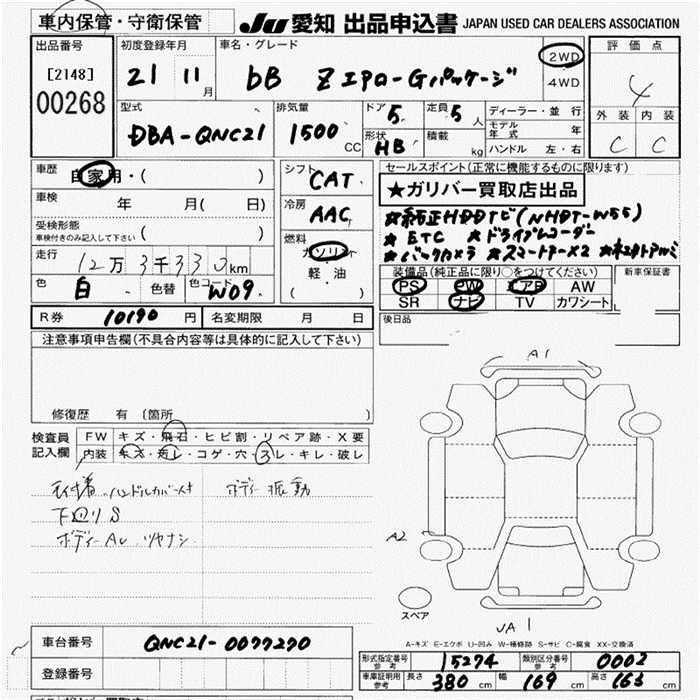 車内保管・守衛保管
JU 愛知 出品申込書 JAPAN USED CAR DEALERS ASSOCIATION
出品番号 [2148] 00268
初度登録年月 21 11月
車名・グレード bB Z エアロ-Gパッケージ
2WD
4WD
評価点 4
外装 内装
C C
型式 DBA-QNC21
排気量 1500 CC
ドア 5
定員 5人
形状 HB
積載 kg
ディーラー・並行
モデル年式 年
ハンドル 左・右
車歴 自家用・( )
車検 年 月( 日)
受検形態
車検付きのみ記入して下さい ( )
走行 12万3千333km
色 白 色替 色コード W09
シフト CAT
冷房 AAC
燃料 ガソリン
軽・油
( )
セールスポイント(正常に機能するものに限ります)
★ガリバー買取店出品
★純正HDDナビ(NHDT-W55)
★ETC ★ドライブレコーダー
★バックカメラ ★スマートキー×2 ★社外アルミ
装備品(純正品に限り○をつけてください)
PS PW エアB AW
SR ナビ TV カワシート
新車保証書
R券 10190 円 名変期限 月 日
後日品
注意事項申告欄(不具合内容等は具体的に記入して下さい)
修復歴 有 〔箇所 〕
検査員記入欄
FW キズ・飛石・ヒビ割・リペア跡・X要
内装 キズ・汚レ・コゲ・穴・スレ・キレ・破レ
ハンドルカバー付 ボディー振動
下回りS
ボディーAU ツヤナシ
A1
A2
スペア
A1
A-キズ E-エクボ U-凹み W-補修跡 S-サビ C-腐食 XX-交換済
車台番号 QNC21-0077270
登録番号
形式指定番号 参考 15274 類別区分番号 参考 0002
車庫証明用 参考 長さ 380 cm 幅 169 cm 高さ 163 cm